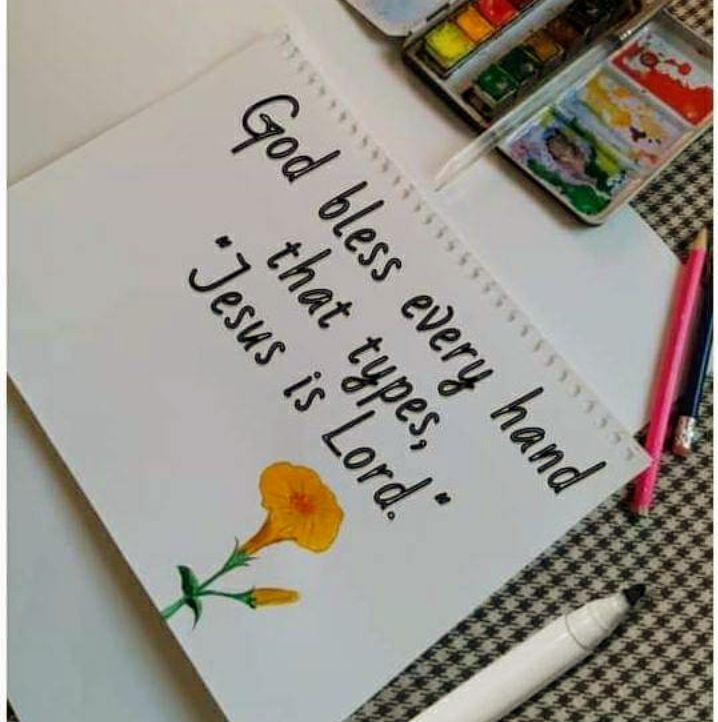 God bless every hand
that types,
"Jesus is Lord."